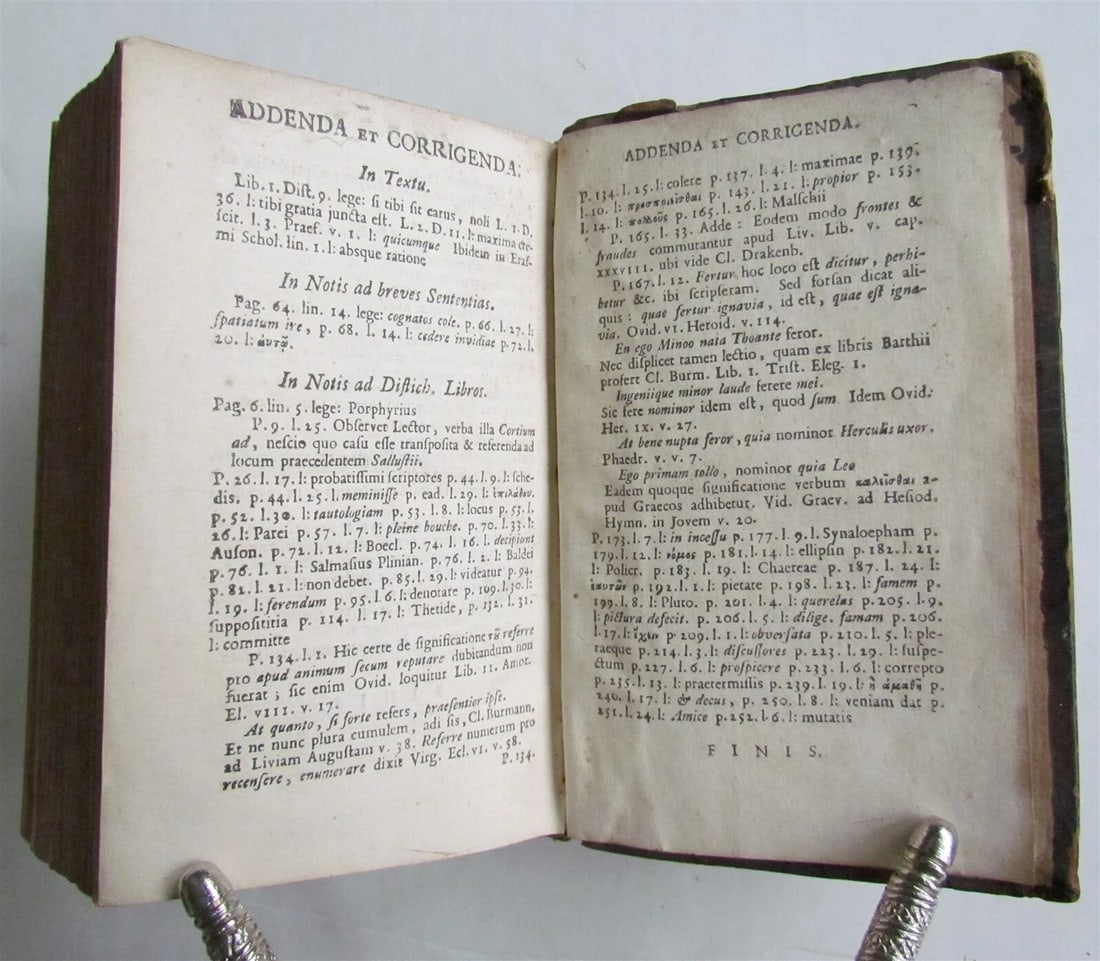 ADDENDA ET CORRIGENDA.
In Textu.
Lib. 1. Dist. 9. lege: si tibi sit carus, noli L. 1. D.
36. l: tibi gratia juncta est. L. 2. D. 11. l: maxima cre-
scit. l. 3. Praef. v. 1. l: quicumque Ibidem in Eras-
mi Schol. lin. 1. l: absque ratione
In Notis ad breves Sententias.
Pag. 64. lin. 14. lege: cognatos cole. p. 66. l. 27. l:
spatiatum ire, p. 68. l. 14. l: cedere invidiae p. 72. l.
20. l: αυτῷ.
In Notis ad Distich. Libros.
Pag. 6. lin. 5. lege: Porphyrius
P. 9. l. 25. Observet Lector, verba illa Cortium
ad, nescio quo casu esse transposita & referenda ad
locum praecedentem Sallustii.
P. 26. l. 17. l: probatissimi scriptores p. 44. l. 9. l: sche-
dis. p. 44. l. 25. l. meminisse p. ead. l. 29. l:
p. 52. l. 30. l: tautologiam p. 53. l. 8. l: locus p. 53. l.
26. l: Parei p. 57. l. 7. l: pleine bouche. p. 70. l. 33. l:
Auson. p. 72. l. 12. l: Boecl. p. 74. l. 16. l: decipiunt
p. 76. l. 1. l: Salmasius Plinian. p. 76. l. 2. l: Baldei
p. 82. l. 21. l: non debet. p. 85. l. 29. l: videatur p. 94.
l. 19. l: ferendum p. 95. l. 6. l: denotare p. 109. l. 30. l:
supposititia p. 114. l. 17. l: Thetide, p. 132. l. 31.
l: committe
P. 134. l. 1. Hic certe de significatione τοῦ referre
pro apud animum secum reputare dubitandum non
fuerat; sic enim Ovid. loquitur Lib. 11. Amor.
El. VIII. v. 17.
At quanto, si forte refers, praesentior ipse.
Et ne nunc plura cumulem, adi sis, Cl. Burmann.
ad Liviam Augustam v. 38. Referre numerum pro
recensere, enumerare dixit Virg. Ecl. VI. v. 58.
P. 134.
ADDENDA ET CORRIGENDA.
P. 134. l. 25. l: colere p. 137. l. 4. l: maximae p. 139.
l. 10. l: προσποιῖσθαι p. 143. l. 21. l: propior p. 153.
l. 14. l: πολλοὺς p. 165. l. 26. l: Malschii
P. 165. l. 33. Adde: Eodem modo frontes &
fraudes commutantur apud Liv. Lib. V. cap.
XXXVIII. ubi vide Cl. Drakenb.
P. 167. l. 12. Fertur hoc loco est dicitur, perhi-
betur &c. ibi scripseram. Sed forsan dicat ali-
quis: quae fertur ignavia, id est, quae est igna-
via. Ovid. VI. Heroid. v. 114.
En ego Minoo nata Thoante feror.
Nec displicet tamen lectio, quam ex libris Barthii
profert Cl. Burm. Lib. 1. Trist. Eleg. 1.
Ingeniique minor laude ferere mei.
Sic fere nominor idem est, quod sum. Idem Ovid.
Her. IX. v. 27.
At bene nupta feror, quia nominor Herculis uxor.
Phaedr. V. v. 7.
Ego primam tollo, nominor quia Leo
Eadem quoque significatione verbum καλεῖσθαι a-
pud Graecos adhibetur. Vid. Graev. ad Hesiod.
Hymn. in Jovem v. 20.
P. 173. l. 7. l: in incessu p. 177. l. 9. l: Synaloepham p.
179. l. 12. l: νόμος p. 181. l. 14. l: ellipsin p. 182. l. 21.
l: Policr. p. 183. l. 19. l: Chaereae p. 187. l. 24. l:
ἑαυτῶν p. 192. l. 1. l: pietate p. 198. l. 23. l: famem p.
199. l. 8. l: Pluto. p. 201. l. 4. l: querelas p. 205. l. 9.
l: pictura defecit. p. 206. l. 5. l: dilige. famam p. 206.
l. 17. l: p 209. l. 1. l: obversata p. 210. l. 5. l: ple-
raeque p. 214. l. 3. l: discussores p. 223. l. 29. l: suspe-
ctum p. 227. l. 6. l: prospicere p. 233. l. 6. l: correpto
p. 235. l. 13. l: praetermissis p. 239. l. 19. l: ἢ ἀμαθῆ p.
240. l. 17. l: & decus, p. 250. l. 8. l: veniam dat p.
251. l. 24. l: Amice p. 252. l. 6. l: mutatis
FINIS.